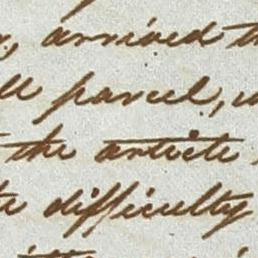 , arrived th
ll parcel,
the article
difficulty